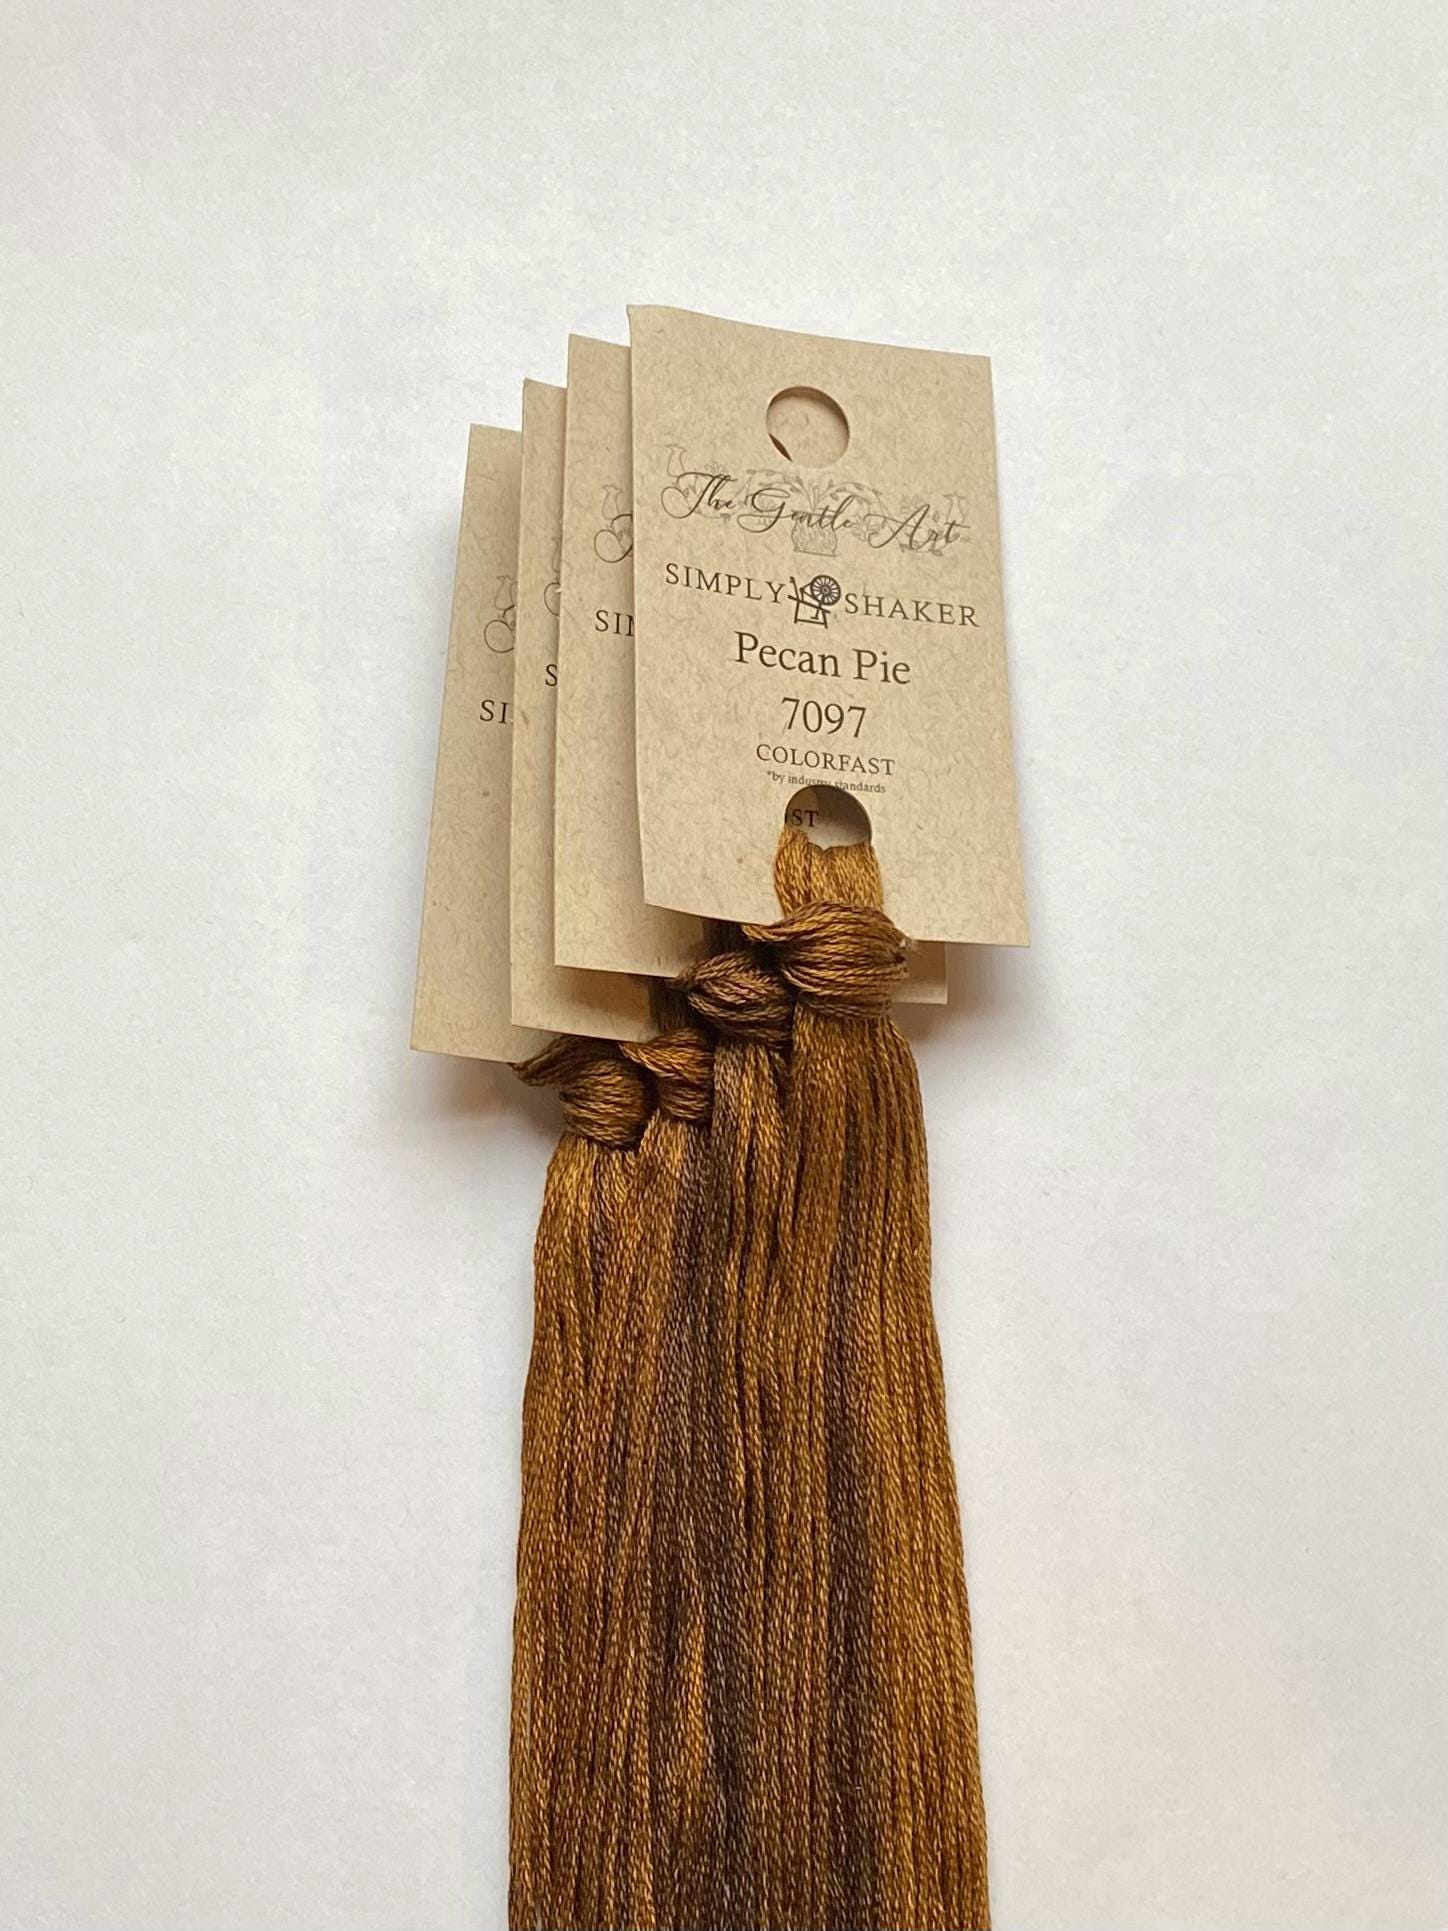 The Gentle Art
SIMPLY SHAKER
Pecan Pie
7097
COLORFAST
*by industry standards
ST
SI
S
SI